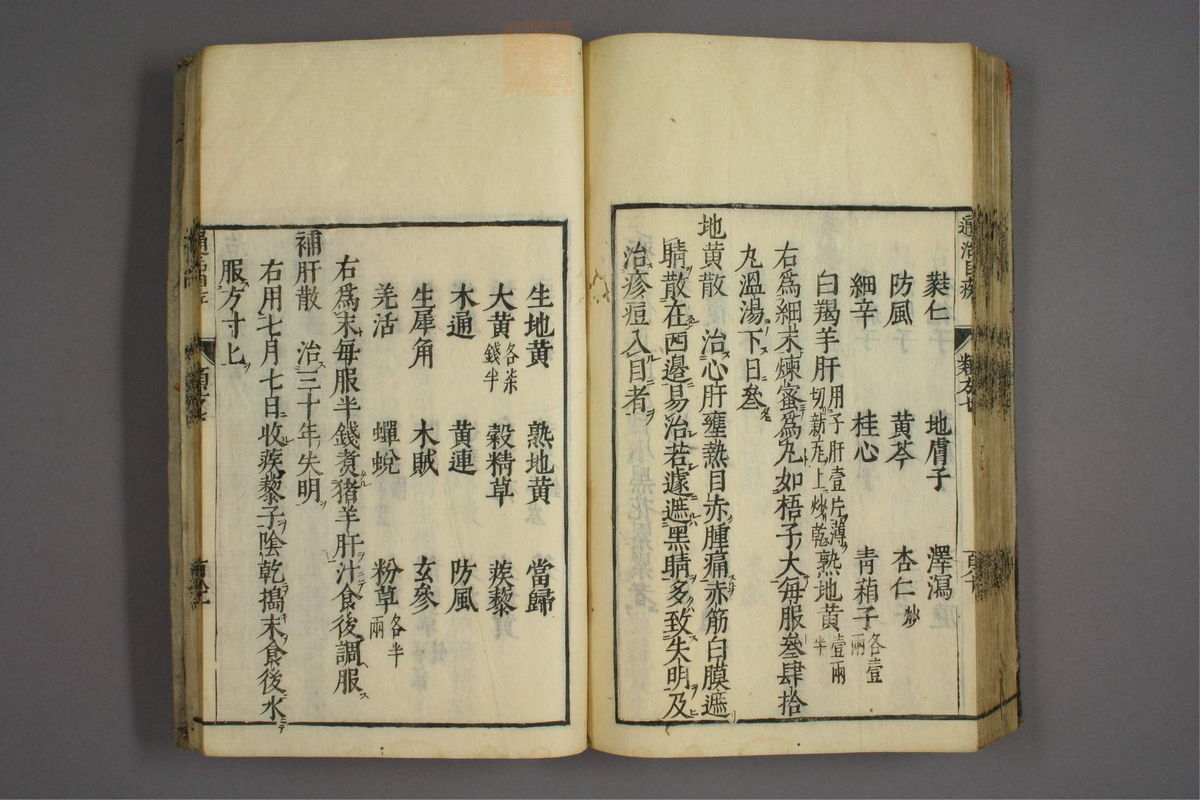 通治目疾 類方七
蕤仁 地膚子 澤瀉
防風 黃芩 杏仁炒
細辛 桂心 靑葙子各壹兩
白羯羊肝用子肝壹片薄切新瓦上炒乾 熟地黃壹兩半
右爲細末煉蜜爲丸如梧子大每服叁肆拾
丸溫湯下日叁
地黃散 治心肝壅熱目赤腫痛赤筋白膜遮
睛散在四邊易治若遽遮黑睛多致失明及
治疹痘入目者
生地黃 熟地黃 當歸
大黃各柒錢半 穀精草 蒺藜
木通 黃連 防風
生犀角 木賊 玄參
羌活 蟬蛻 粉草各半兩
右爲末每服半錢煑猪羊肝汁食後調服
補肝散 治三十年失明
右用七月七日收蒺藜子陰乾搗末食後水
服方寸匕